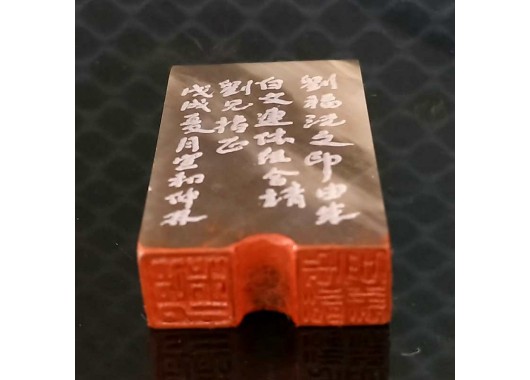 劉福沅之印由朱
白文連珠組合請
劉兄指正
戊戌夏月宜和仲林